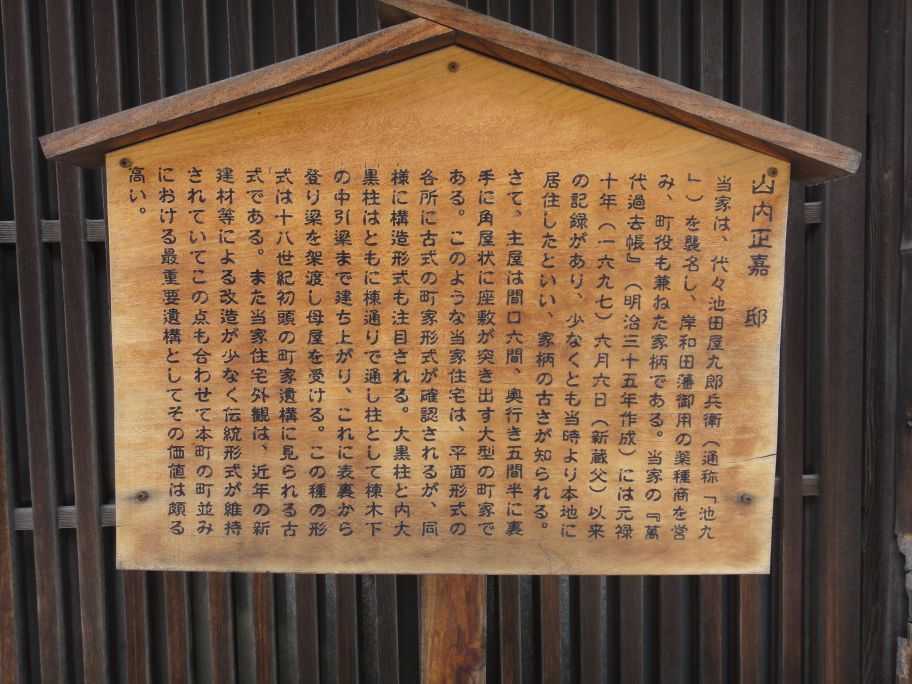 山内正嘉　邸
当家は、代々池田屋九郎兵衛（通称「池九
」）を襲名し、岸和田藩御用の薬種商を営
み、町役も兼ねた家柄である。当家の『萬
代過去帳』（明治三十五年作成）には元禄
十年（一六九七）六月六日（新蔵父）以来
の記録があり、少なくとも当時より本地に
居住したといい、家柄の古さが知られる。
さて、主屋は間口六間、奥行き五間半に裏
手に角屋状に座敷が突き出す大型の町家で
ある。このような当家住宅は、平面形式の
各所に古式の町家形式が確認されるが、同
様に構造形式も注目される。大黒柱と内大
黒柱はともに棟通りで通し柱として棟木下
の中引梁まで建ち上がり、これに表裏から
登り梁を架渡し母屋を受ける。この種の形
式は十八世紀初頭の町家遺構に見られる古
式である。また当家住宅外観は、近年の新
建材等による改造が少なく伝統形式が維持
されていてこの点も合わせて本町の町並み
における最重要遺構としてその価値は頗る
高い。